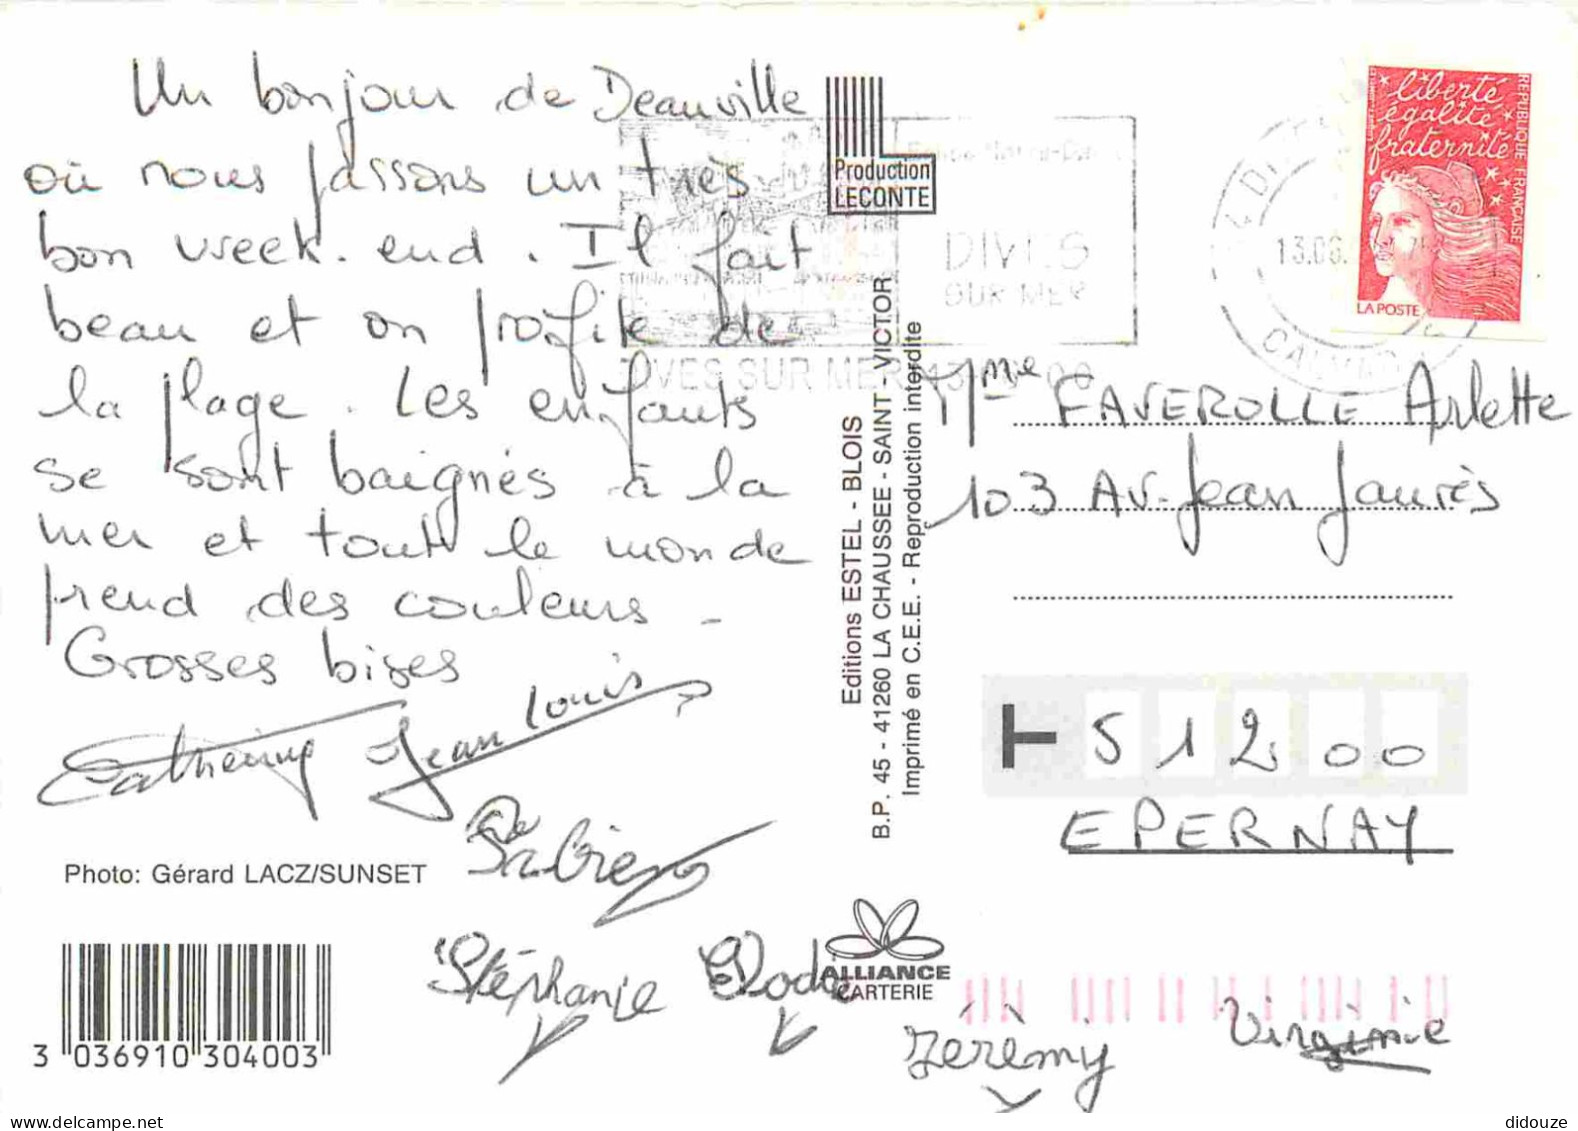 Un bonjour de Deauville
où nous passons un très
bon week. end. Il fait
beau et on profite de
la plage. Les enfants
se sont baignés à la
mer et tout le monde
prend des couleurs -
Grosses bises
Catherine Jean Louis
Fabien
Stéphanie Elodie
Jérèmy Virginie
Photo: Gérard LACZ/SUNSET
3 036910 304003
Production
LECONTE
Editions ESTEL - BLOIS
B.P. 45 - 41260 LA CHAUSSEE - SAINT - VICTOR
Imprimé en C.E.E. - Reproduction interdite
ALLIANCE
CARTERIE
DIVES
SUR MER
DIVES SUR MER
13.06.
CALVADOS
liberté
égalité
fraternité
REPUBLIQUE FRANÇAISE
LA POSTE
Mme FAVEROLLE Arlette
103 Av. Jean Jaurès
51200
EPERNAY
didouze